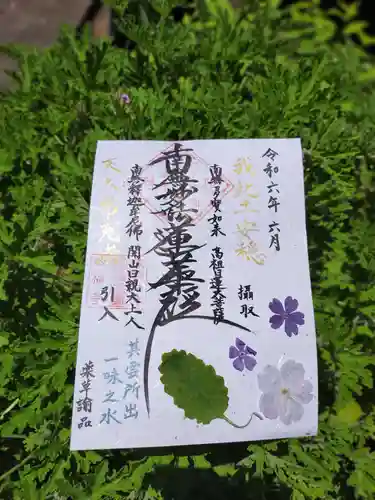 令和六年六月
我此土安穏
摂
南無多寶如来
高祖日蓮大菩薩
南無妙法蓮華経
南無釈迦牟尼佛
開山日親大上人
引入
其雲所出
一味之水
薬草諭品